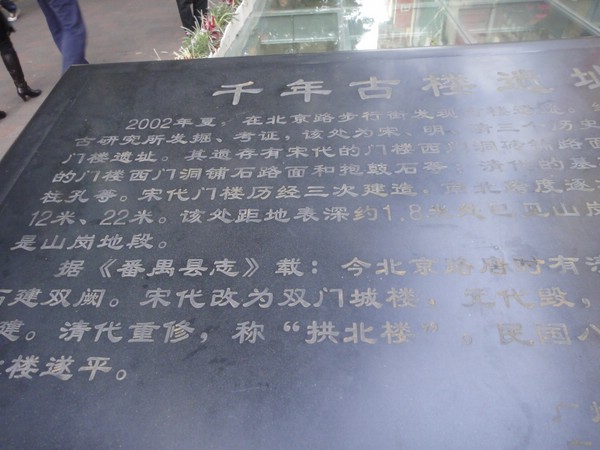 千年古楼遗址
2002年夏，在北京路步行街发现
古研究所发掘、考证，该处为宋、明、三个历史
门楼遗址。其遗存有宋代的门楼西门洞砖铺路面
的门楼西门洞铺石路面和抱鼓石等，清代的基
柱孔等。宋代门楼历经三次建造，南北跨度逐
12米、22米。该处距地表深约1.8米已见山岗
是山岗地段。
据《番禺县志》载：今北京路唐时有
石建双阙。宋代改为双门城楼，代毁，
建。清代重修，称“拱北楼”，民国八
楼遂平。
广